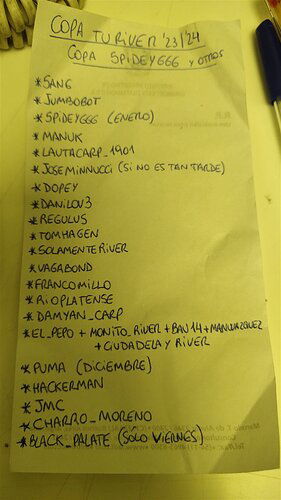 COPA TU RIVER '23/'24
COPA SPIDEY666 y OTROS
*SANG
*JUMBOBOT
*SPIDEY666 (ENERO)
*MANUK
*LAUTACARP_1901
*JOSEMINNUCCI (SI NO ES TAN TARDE)
*DOPEY
*DANILOV3
*REGULUS
*TOMHAGEN
*SOLAMENTERIVER
*VAGABOND
*FRANCOMILLO
*RIOPLATENSE
*DAMYAN_CARP
*EL_PEPO + MONITO_RIVER + BAU14 + MANUVAZQUEZ
+ CIUDADELA Y RIVER
*PUMA (DICIEMBRE)
*HACKERMAN
*JMC
*CHARRO_MORENO
*BLACK_PALATE (SOLO VIERNES)